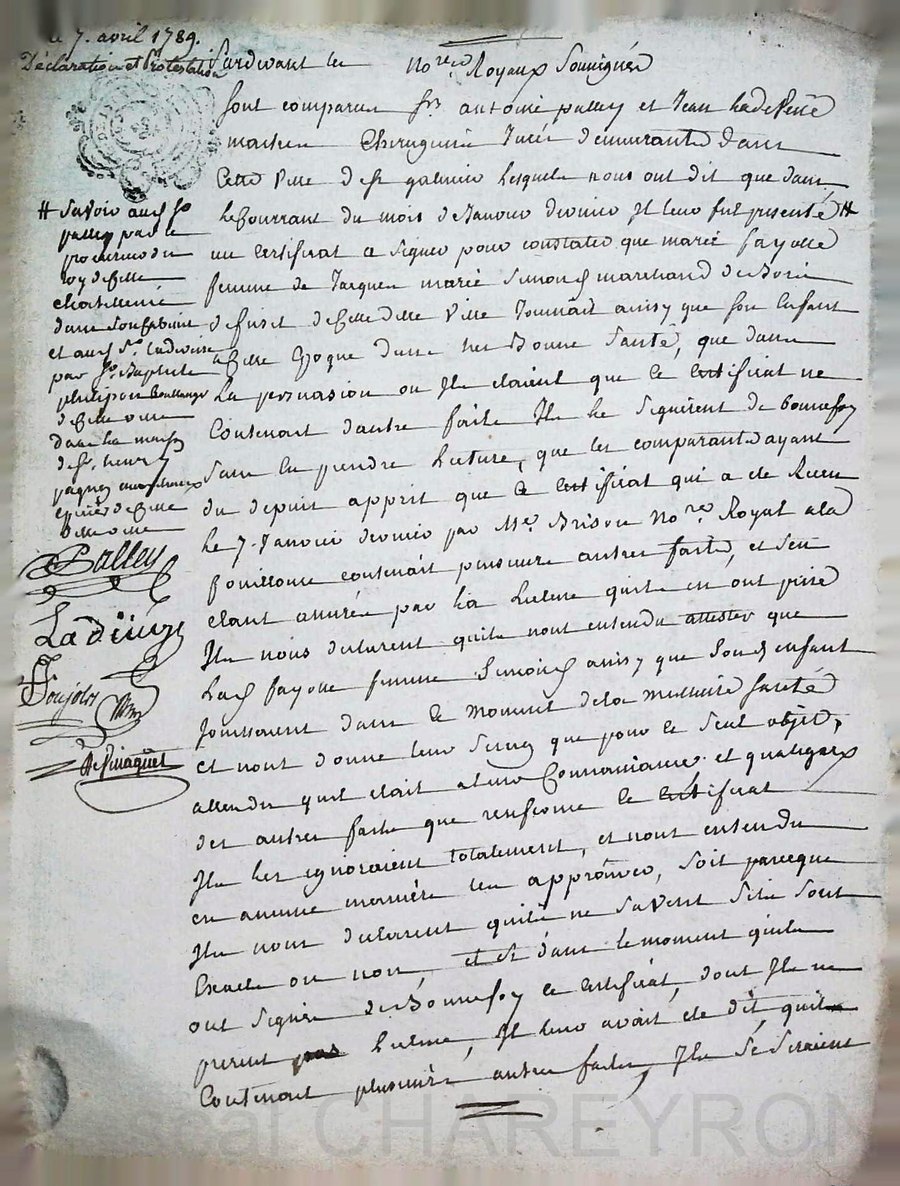 le 7. avril 1789.
Déclaration et Protestation
Pardevant les No.res Royaux Soussignés
Sont comparus Srs. antoine palley et Jean Ladeveze
maitres Chirugiens Jurés demeurants dans
Cette Ville de St galmier Lesquels nous ont dit que dans
le Courrant du mois de Janvier dernier Il leur fut presenté #
un Certificat a Signer pour constater que marie fayolle
femme de Jacques marie Simond marchand de
de cette ditte Ville Jouissait ainsy que son Enfant
a cette Epoque d'une tres Bonne Santé, que dans
La persuasion ou Ils etaient que ce Certificat ne
Contenait d'autre faits Ils le Signèrent de bonnefoy
Sans en prendre Lecture, que les comparants ayant
du depuis appris que ce Certificat qui a été Recu
le 7. Janvier dernier par Me. Brison No.re Royal a la
fouillouse contenait plusieurs autres faits, et s'en
étant assurés par la Lecture quils en ont prise
Ils nous declarent quils n'ont entendu attester que
La d. fayolle femme Simond ainsy que Son d. enfant
Jouissoient dans ce moment de la meilleure Santé
et n'ont donné leur Seing que pour ce Seul objet,
attendu quil était a leur Connoissance et qua l'égard
des autres faits que renferme le Certificat
Ils les ignoraient totalement, et n'ont entendu
en aucune manière les approuver, Soit parceque
Ils nous declarent quils ne Savent S'ils Sont
Exacts ou non, et Si dans le moment quils
ont Signé de Bonnefoy ce Certificat, dont Ils ne
prirent pas Lecture, Il leur avait été dit quil
Contenait plusieurs autres faits, Ils Se Seraient
# Savoir aud. Sr.
palley par le
procureur du
roy de cette
chatellenie
dans Son Cabinet
et aud. Sr. Ladevese
par Sr. Baptiste
philipon Boulanger
de cette ville
dans la maison
de Sr. henry
pagnez marchand
epicier de cette
ditte ville
Palley
Ladeveze
Soujolot
Depinaquet
Pascal CHAREYRON